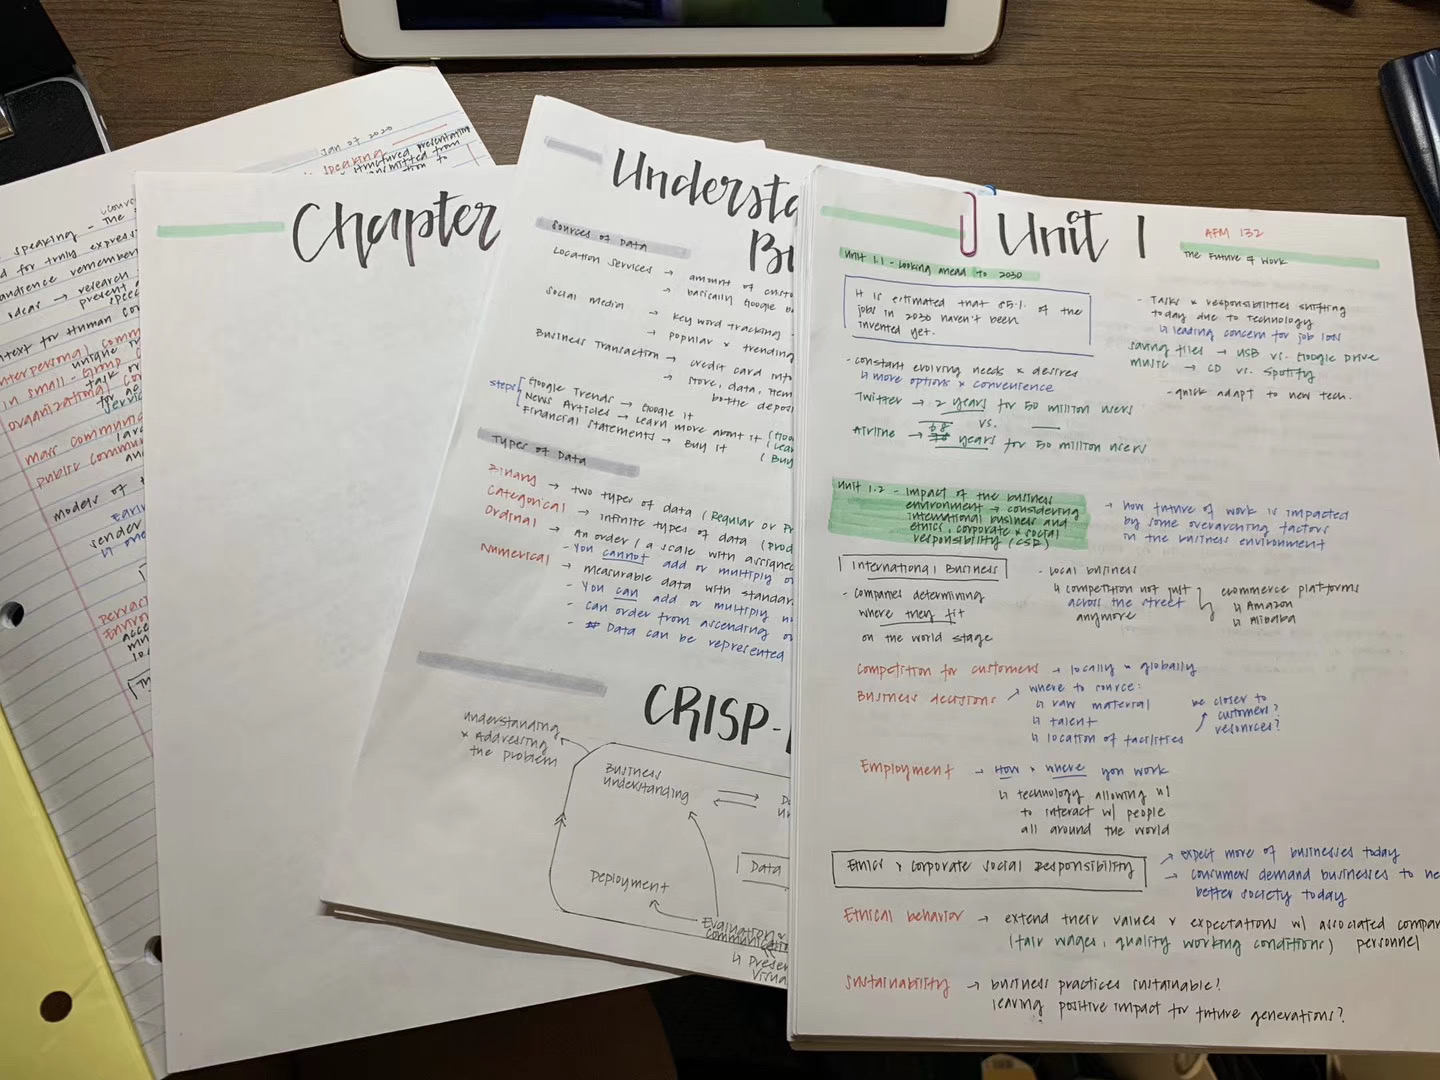 Jan 07 2020
speaking
structured presentation
speaking - the
for truly express
audience remember
ideas → research
present
in small - group
mass communic
public commu
models of
sender
Chapter
Understa
Bu
Sources of Data
Location Services → amount of custo
→ basically Google
Social media → key word tracking
→ popular & trending
Business Transaction → credit card info
→ store, date, item
bottle depos
steps
Google Trends → Google it
News Articles → Learn more about it
Financial Statements → Buy it (Buy
Types of Data
Binary → two types of data (Regular or Pr
Categorical → infinite types of data (prod
Ordinal → An order / a scale with assigned
- You cannot add or multiply or
Numerical → measurable data with standar
- You can add or multiply
- can order from ascending or
- # Data can be represented
CRISP-
understanding
& Addressing
the problem
Business
understanding
Data
Deployment
Evaluation &
communication
↳ Presen
visua
Unit 1
AFM 132
The Future of Work
Unit 1.1 - Looking ahead to 2030
It is estimated that 85% of the
jobs in 2030 haven't been
invented yet.
- constant evolving needs & desires
↳ more options & convenience
Twitter → 2 years for 50 million users
vs.
Airline → 68 years for 50 million users
- Tasks & responsibilities shifting
today due to technology
↳ leading concern for job loss
saving files → USB vs. Google Drive
music → CD vs. Spotify
- quick adapt to new tech.
Unit 1.2 - Impact of the business
environment → considering
international business and
ethics, corporate & social
responsibility (CSR)
→ how future of work is impacted
by some overarching factors
in the business environment
International Business
- companies determining
where they fit
on the world stage
- local business
↳ competition not just
across the street
anymore
ecommerce platforms
↳ Amazon
↳ Alibaba
Competition for customers → locally & globally
Business decisions → where to source:
↳ raw material
↳ talent
↳ location of facilities
we closer to
customers?
resources?
Employment → How & where you work
↳ technology allowing us
to interact w/ people
all around the world
Ethics & Corporate Social Responsibility
→ expect more of businesses today
→ consumers demand businesses to
better society today
Ethical behavior → extend their values & expectations w/ associated compan
(fair wages, quality working conditions) personnel
Sustainability → business practices sustainable?
leaving positive impact for future generations?